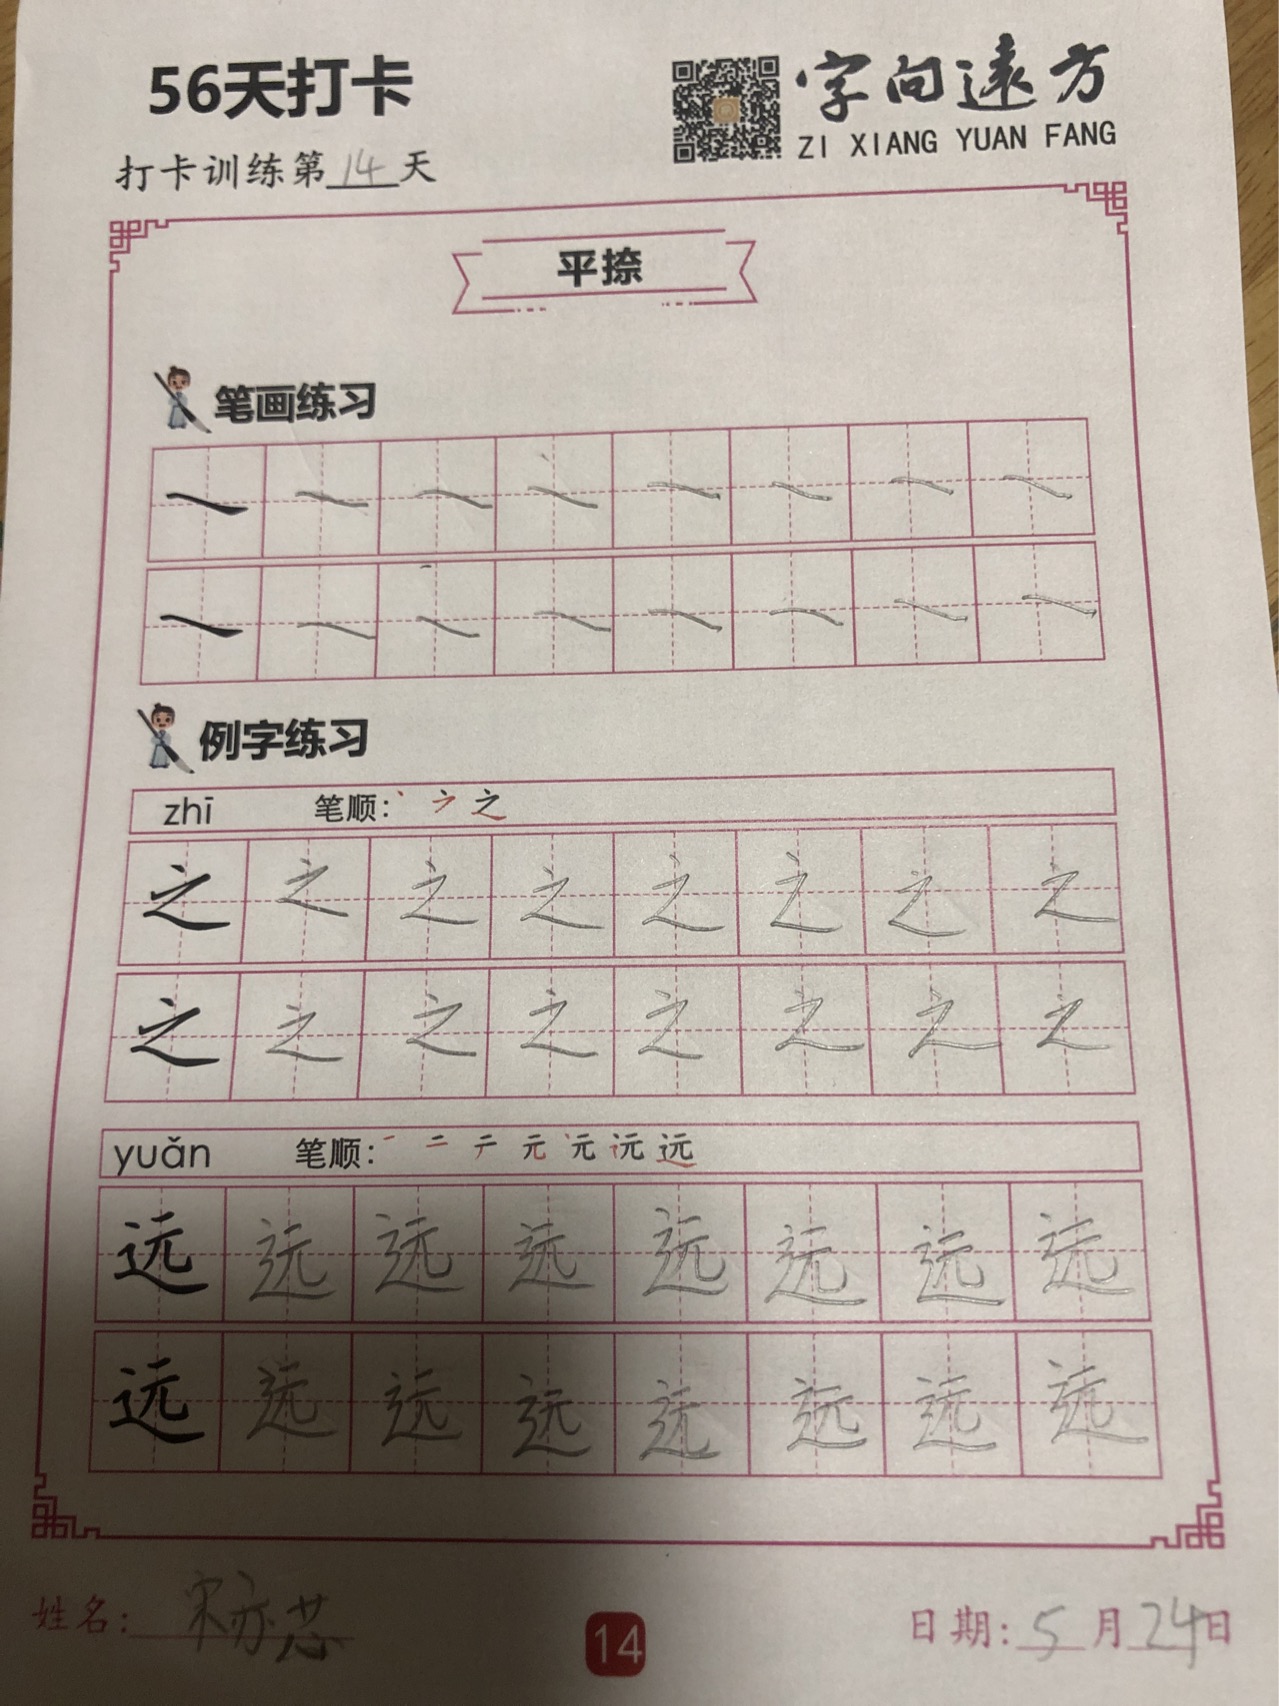 56天打卡
字向遠方
ZI XIANG YUAN FANG
打卡训练第14天
平捺
笔画练习
例字练习
zhī 笔顺: 之
之 之 之 之 之 之 之 之
之 之 之 之 之 之 之 之
yuǎn 笔顺: 一 二 テ 元 远
远 远 远 远 远 远 远 远
远 远 远 远 远 远 远 远
姓名: 宋亦芯
14
日期: 5月24日